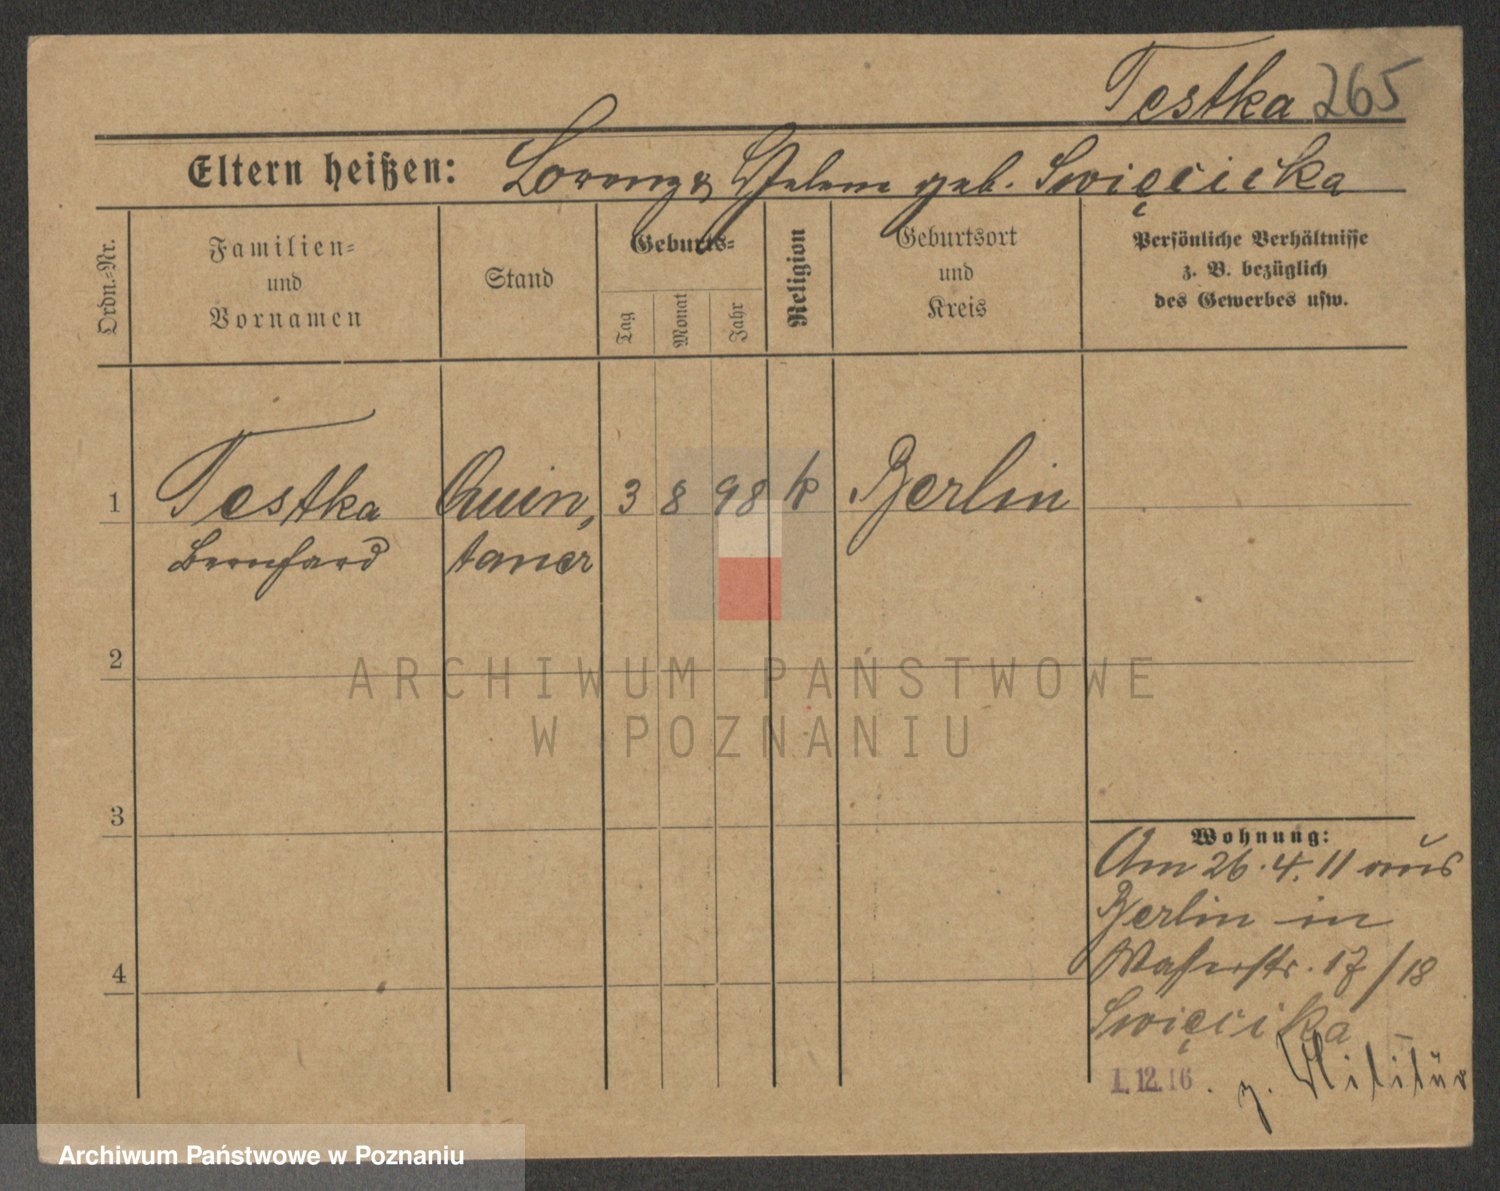 Testka 265
Eltern heißen: Lorenz & Helene geb. Święcicka
Ordn.-Nr.
Familien-
und
Vornamen
Stand
Geburts-
Tag
Monat
Jahr
Religion
Geburtsort
und
Kreis
Persönliche Verhältnisse
z. B. bezüglich
des Gewerbes usw.
1 Testka Quin, 3 8 98 k Berlin
Bernhard taner
2
ARCHIWUM PAŃSTWOWE
W POZNANIU
3
Wohnung:
Am 26.4.11 aus
Berlin in
Wasserstr. 17/18
Święcicka
4
1.12.16. z. Militär
Archiwum Państwowe w Poznaniu